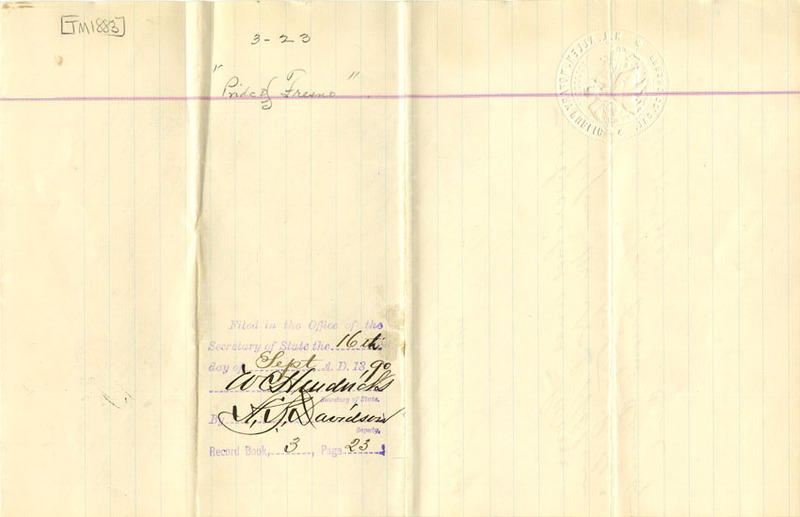 [TM1883]
3-23
"Pride of Fresno"
Filed in the Office of the
Secretary of State the 16th
day of Sept A. D. 1890
W C Hendricks
Secretary of State.
By A. J. Davidson
Deputy.
Record Book, 3, Page 23